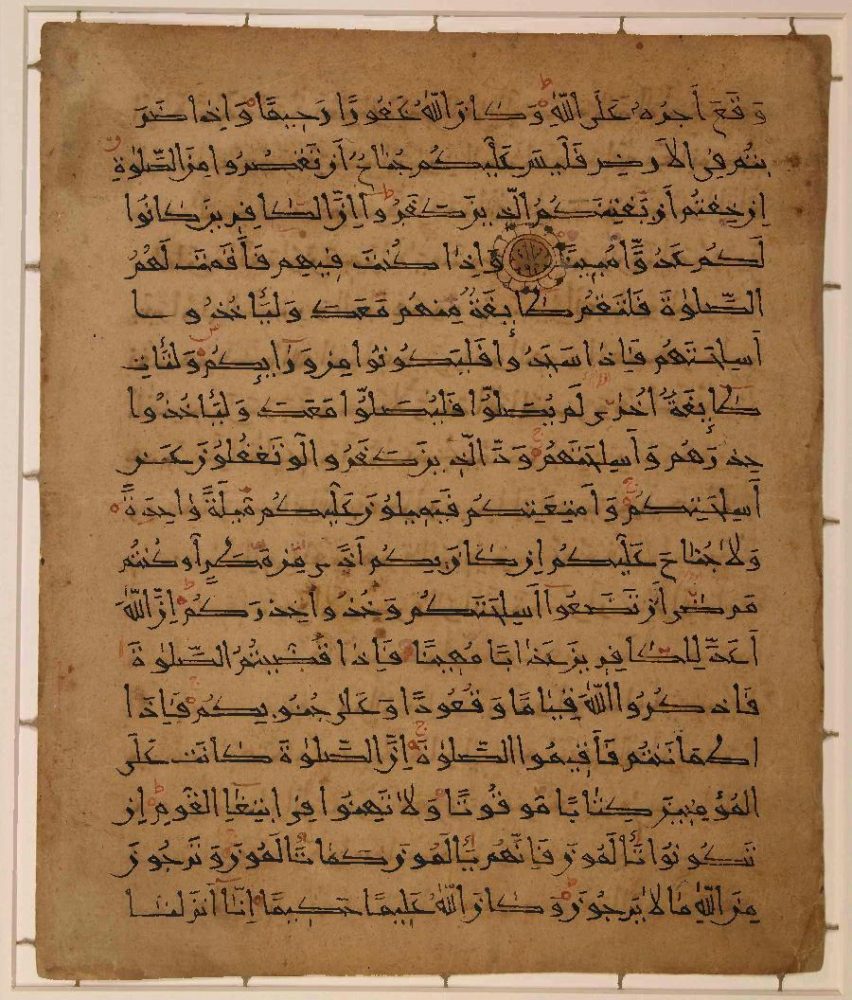 وَقَعَ أَجْرُهُ عَلَى اللَّهِ وَكَانَ اللَّهُ غَفُورًا رَحِيمًا وَإِذَا ضَرَ
بْتُمْ فِي الْأَرْضِ فَلَيْسَ عَلَيْكُمْ جُنَاحٌ أَنْ تَقْصُرُوا مِنَ الصَّلَوٰةِ
إِنْ خِفْتُمْ أَنْ يَفْتِنَكُمُ الَّذِينَ كَفَرُوا إِنَّ الْكَافِرِينَ كَانُوا
لَكُمْ عَدُوًّا مُبِينًا وَإِذَا كُنْتَ فِيهِمْ فَأَقَمْتَ لَهُمُ
الصَّلَوٰةَ فَلْتَقُمْ طَائِفَةٌ مِنْهُمْ مَعَكَ وَلْيَأْخُذُوا
أَسْلِحَتَهُمْ فَإِذَا سَجَدُوا فَلْيَكُونُوا مِنْ وَرَائِكُمْ وَلْتَأْتِ
طَائِفَةٌ أُخْرَىٰ لَمْ يُصَلُّوا فَلْيُصَلُّوا مَعَكَ وَلْيَأْخُذُوا
حِذْرَهُمْ وَأَسْلِحَتَهُمْ وَدَّ الَّذِينَ كَفَرُوا لَوْ تَغْفُلُونَ عَنْ
أَسْلِحَتِكُمْ وَأَمْتِعَتِكُمْ فَيَمِيلُونَ عَلَيْكُمْ مَيْلَةً وَاحِدَةً
وَلَا جُنَاحَ عَلَيْكُمْ إِنْ كَانَ بِكُمْ أَذًى مِنْ مَطَرٍ أَوْ كُنْتُمْ
مَرْضَىٰ أَنْ تَضَعُوا أَسْلِحَتَكُمْ وَخُذُوا حِذْرَكُمْ إِنَّ اللَّهَ
أَعَدَّ لِلْكَافِرِينَ عَذَابًا مُهِينًا فَإِذَا قَضَيْتُمُ الصَّلَوٰةَ
فَاذْكُرُوا اللَّهَ قِيَامًا وَقُعُودًا وَعَلَىٰ جُنُوبِكُمْ فَإِذَا
اطْمَأْنَنْتُمْ فَأَقِيمُوا الصَّلَوٰةَ إِنَّ الصَّلَوٰةَ كَانَتْ عَلَى
الْمُؤْمِنِينَ كِتَابًا مَوْقُوتًا وَلَا تَهِنُوا فِي ابْتِغَاءِ الْقَوْمِ إِنْ
تَكُونُوا تَأْلَمُونَ فَإِنَّهُمْ يَأْلَمُونَ كَمَا تَأْلَمُونَ وَتَرْجُونَ
مِنَ اللَّهِ مَا لَا يَرْجُونَ وَكَانَ اللَّهُ عَلِيمًا حَكِيمًا إِنَّا أَنْزَلْنَا